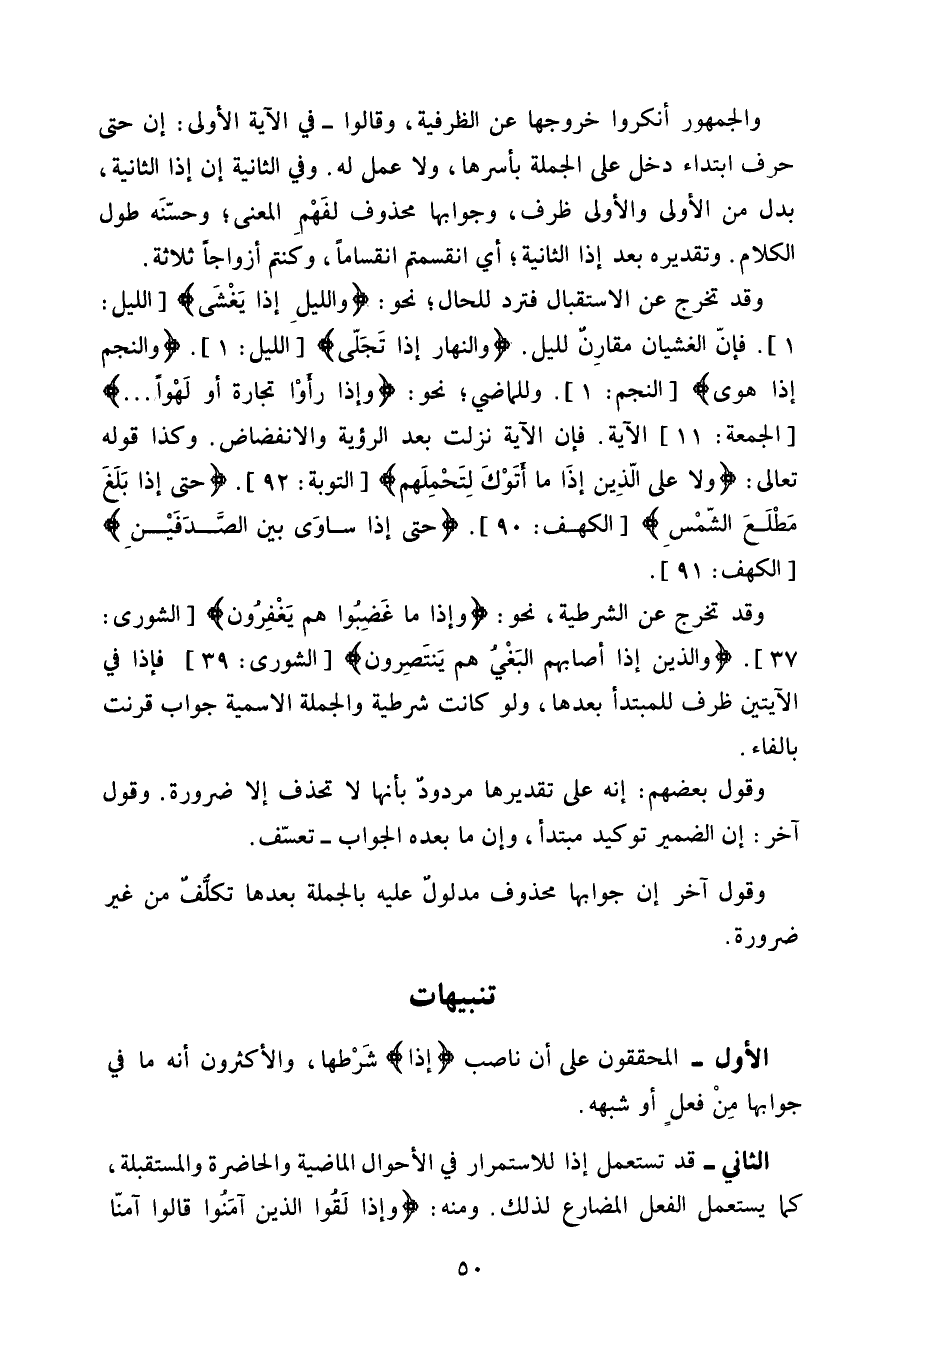 والجمهور أنكروا خروجها عن الظرفية، وقالوا ـ في الآية الأولى: إن حتى
حرف ابتداء دخل على الجملة بأسرها، ولا عمل له. وفي الثانية إن إذا الثانية،
بدل من الأولى والأولى ظرف، وجوابها محذوف لفَهْمِ المعنى؛ وحسّنَه طول
الكلام. وتقديره بعد إذا الثانية؛ أي انقسمتم انقساماً، وكنتم أزواجاً ثلاثة.
وقد تخرج عن الاستقبال فترد للحال؛ نحو: ﴿والليلِ إذا يَغْشَى﴾ [الليل:
١]. فإنّ الغشيان مقارنٌ لليل. ﴿والنهار إذا تَجَلّى﴾ [الليل: ١]. ﴿والنجم
إذا هوى﴾ [النجم: ١]. وللماضي؛ نحو: ﴿وإذا رأَوْا تجارة أو لَهْواً...﴾
[الجمعة: ١١] الآية. فإن الآية نزلت بعد الرؤية والانفضاض. وكذا قوله
تعالى: ﴿ولا على الّذِين إذَا ما أَتَوْكَ لِتَحْمِلَهم﴾ [التوبة: ٩٢]. ﴿حتى إذا بَلَغَ
مَطْلَـعَ الشّمْسِ﴾ [الكهـف: ٩٠]. ﴿حتى إذا سـاوَى بين الصَّـدَفَيْـنِ﴾
[الكهف: ٩١].
وقد تخرج عن الشرطية، نحو: ﴿وإذا ما غَضِبُوا هم يَغْفِرُون﴾ [الشورى:
٣٧]. ﴿والذين إذا أصابهم البَغْيُ هم يَنتَصِرون﴾ [الشورى: ٣٩] فإذا في
الآيتين ظرف للمبتدأ بعدها، ولو كانت شرطية والجملة الاسمية جواب قرنت
بالفاء.
وقول بعضهم: إنه على تقديرها مردودٌ بأنها لا تحذف إلا ضرورة. وقول
آخر: إن الضمير توكيد مبتدأ، وإن ما بعده الجواب ـ تعسّف.
وقول آخر إن جوابها محذوف مدلولٌ عليه بالجملة بعدها تكلُّفٌ من غير
ضرورة.
تنبيهات
الأول ـ المحققون على أن ناصب ﴿إذا﴾ شَرْطها، والأكثرون أنه ما في
جوابها مِنْ فعلٍ أو شبهه.
الثاني ـ قد تستعمل إذا للاستمرار في الأحوال الماضية والحاضرة والمستقبلة،
كما يستعمل الفعل المضارع لذلك. ومنه: ﴿وإذا لَقُوا الذين آمَنُوا قالوا آمنّا
٥٠